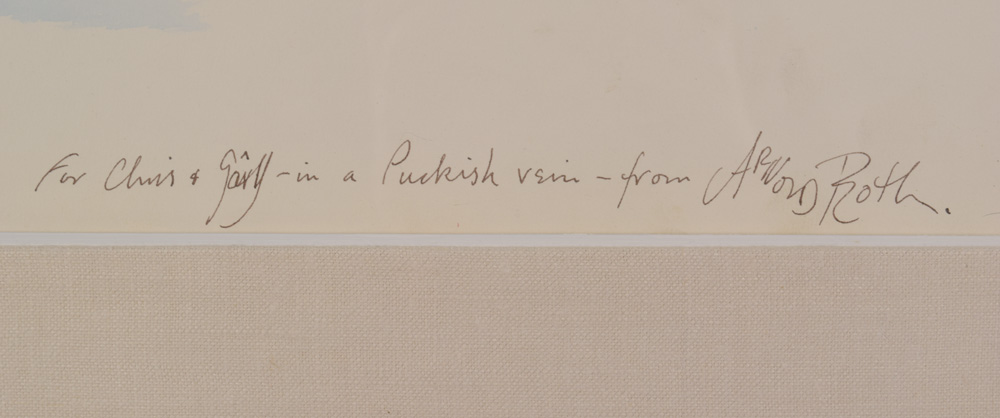 For Chris & - in a Puckish vein - from ARNOLD Roth.